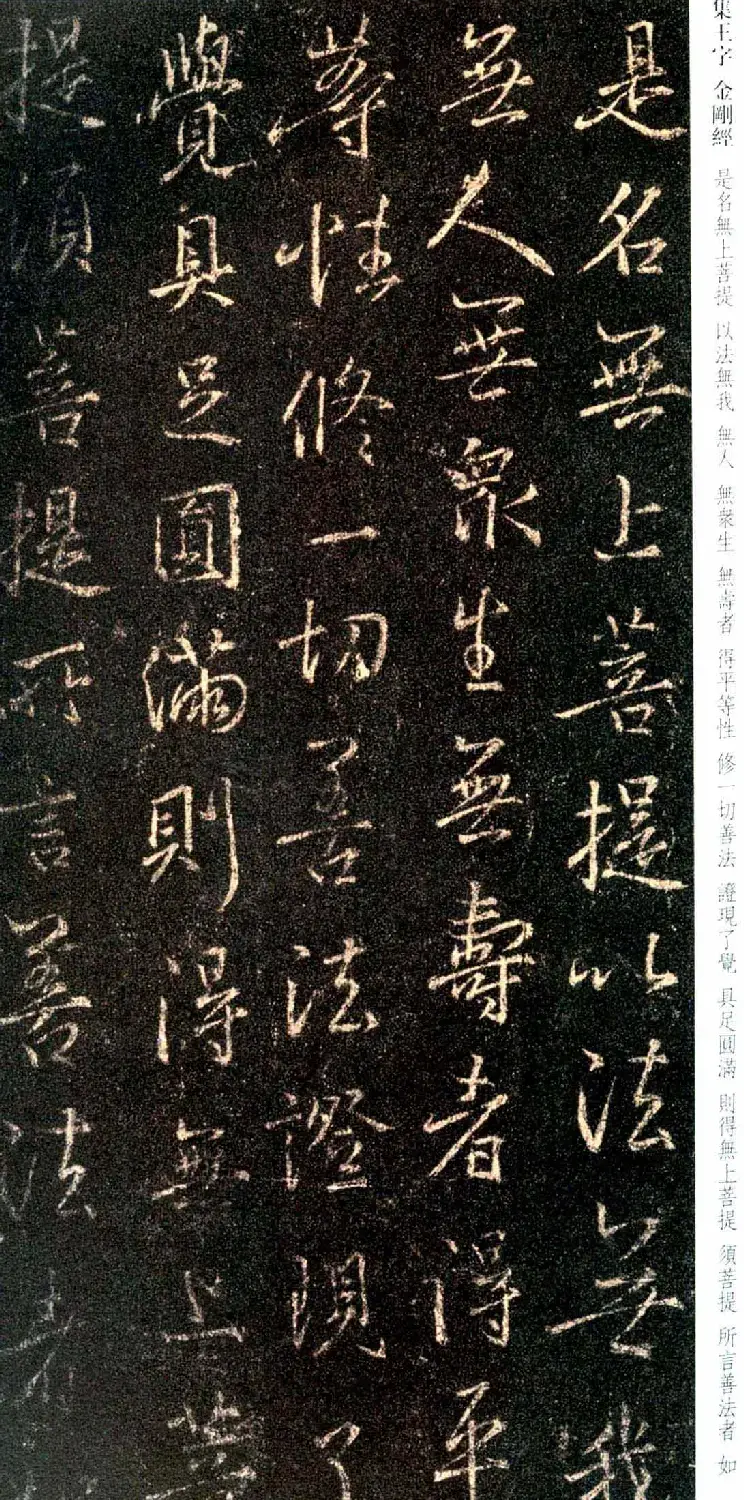 集王字 金剛經 是名無上菩提 以法無我 無人 無衆生 無壽者 得平等性 修一切善法 證現了覺 具足圓滿 則得無上菩提 須菩提 所言善法者 如
是名無上菩提以法無我
無人無衆生無壽者得平
等性修一切善法證現了
覺具足圓滿則得無上菩
提須菩提所言善法者